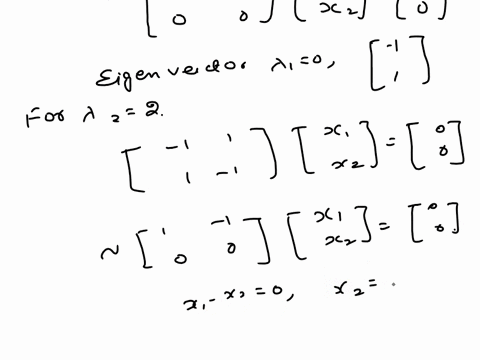 [0 0] [x₂] [0]
Eigenvector λ₁=0, [-1 1]
For λ₂=2.
[-1 1 1 -1] [x₁ x₂] = [0 0]
~ [1 -1 0 0] [x₁ x₂] = [0 0]
x₁-x₂=0, x₂=